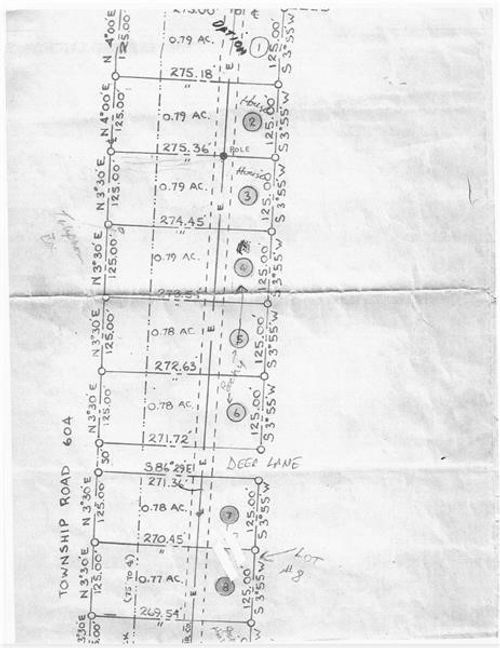 273.00'
0.79 AC.
OPTION
1
N 4°00' E
125.00'
S 3°55' W
125.00'
275.18'
E
House
0.79 AC.
2
N 4°00' E
125.00'
125.00'
S 3°55' W
275.36'
POLE
House
0.79 AC.
3
N 3°30' E
125.00'
125.00'
S 3°55' W
274.45'
E
0.79 AC.
4
N 3°30' E
125.00'
125.00'
S 3°55' W
273.54'
E
0.78 AC.
5
N 3°30' E
125.00'
125.00'
S 3°55' W
272.63'
0.78 AC.
6
N 3°30' E
125.00'
125.00'
S 3°55' W
271.72'
50'
E
DEER LANE
S 86°29' E
271.36'
0.78 AC.
7
N 3°30' E
125.00'
125.00'
S 3°55' W
270.45'
LOT
#8
0.77 AC.
8
(75 TO ℄)
N 3°30' E
125.00'
125.00'
S 3°55' W
E
269.54'
TOWNSHIP ROAD 604